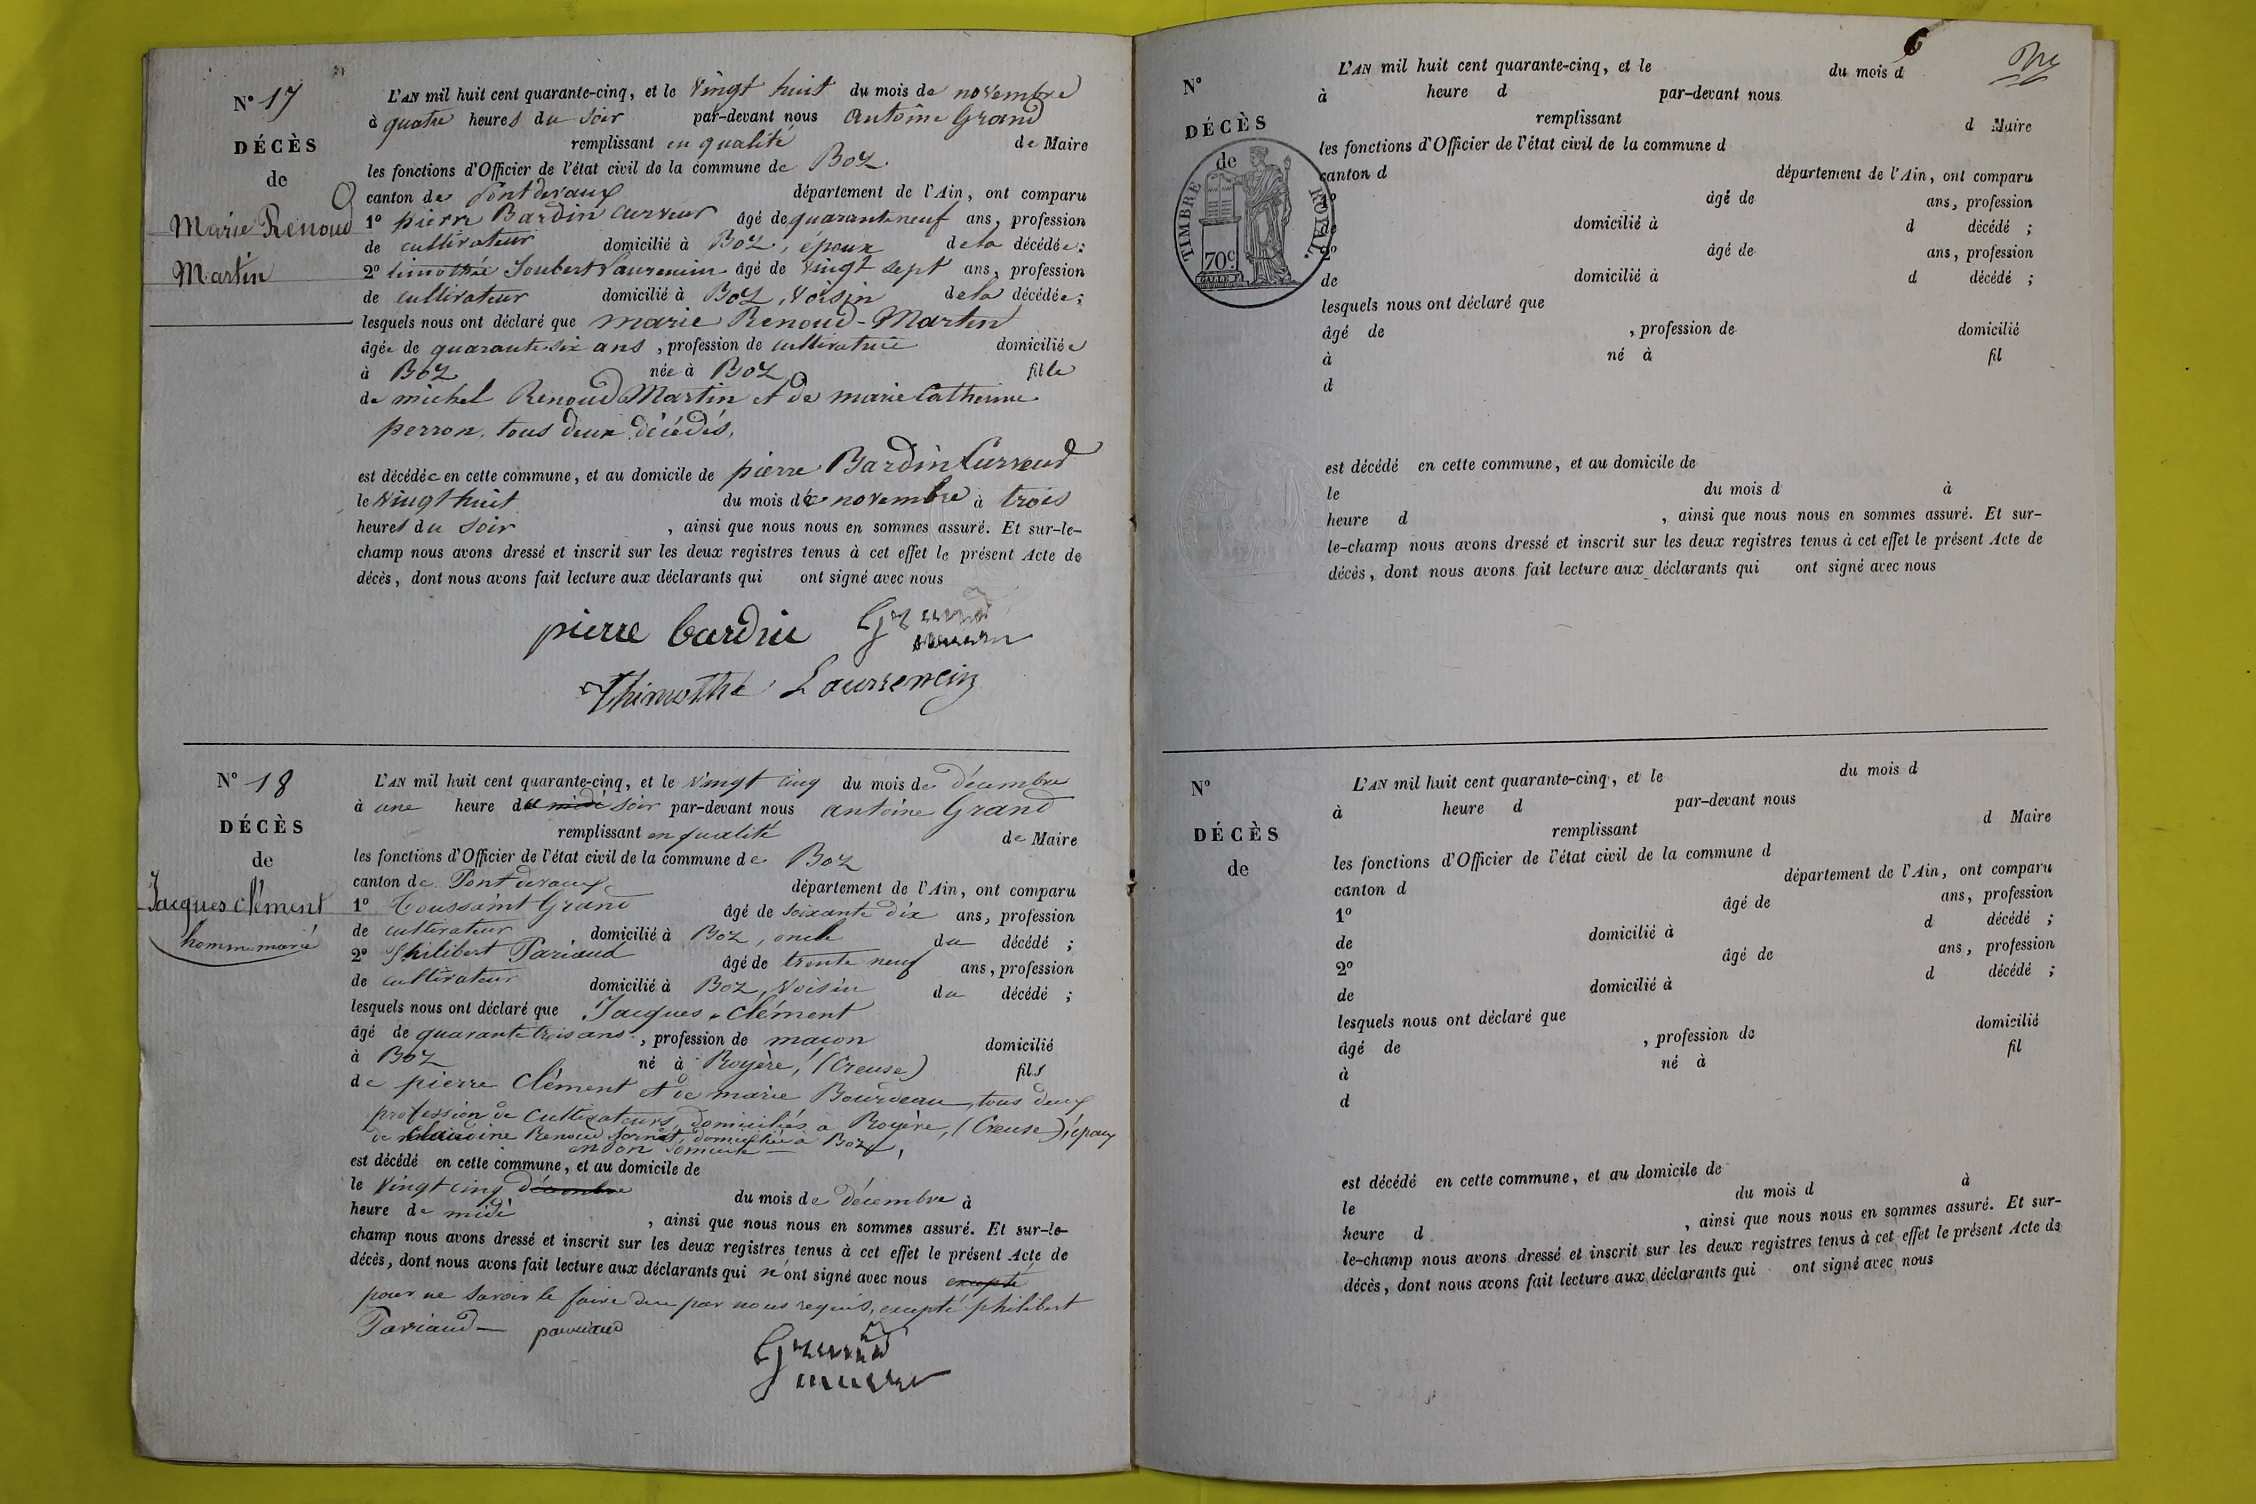 N° 17
DÉCÈS
de
Marie Renoud
Martin
L'AN mil huit cent quarante-cinq, et le vingt huit du mois de novembre
à quatre heures du soir par-devant nous antoine Grand
remplissant en qualité de Maire
les fonctions d'Officier de l'état civil de la commune de Boz
canton de Pontdevaux département de l'Ain, ont comparu
1° pierre Bardin curveur âgé de quarante neuf ans, profession
de cultivateur domicilié à Boz, époux de la décédée;
2° timothée Joubert Laurencin âgé de vingt sept ans, profession
de cultivateur domicilié à Boz, voisin de la décédée;
lesquels nous ont déclaré que marie Renoud-Martin
âgée de quarante six ans, profession de cultivatrice domiciliée
à Boz née à Boz fille
de michel Renoud Martin et de marie Catherine
perron, tous deux décédés,
est décédée en cette commune, et au domicile de pierre Bardin Curveur
le vingt huit du mois de novembre à trois
heures du soir, ainsi que nous nous en sommes assuré. Et sur-le-
champ nous avons dressé et inscrit sur les deux registres tenus à cet effet le présent Acte de
décès, dont nous avons fait lecture aux déclarants qui ont signé avec nous
pierre bardin Grand
Thimothé Laurrencin
N° 18
DÉCÈS
de
Jacques clément
homme marié
L'AN mil huit cent quarante-cinq, et le vingt cinq du mois de décembre
à une heure du midi soir par-devant nous antoine Grand
remplissant en qualité de Maire
les fonctions d'Officier de l'état civil de la commune de Boz
canton de Pontdevaux département de l'Ain, ont comparu
1° Toussaint Grand âgé de soixante dix ans, profession
de cultivateur domicilié à Boz, oncle du décédé;
2° Philibert Pariaud âgé de trente neuf ans, profession
de cultivateur domicilié à Boz, voisin du décédé;
lesquels nous ont déclaré que Jacques clément
âgé de quarante trois ans, profession de macon domicilié
à Boz né à Royère, (Creuse) fils
de pierre Clément et de marie Bourdeau, tous deux
profession de cultivateurs domiciliés à Royère, (Creuse) époux
de claudine Renoud domiciliée à Boz,
en son domicile
est décédé en cette commune, et au domicile de
le vingt cinq décembre du mois de décembre à
heure de midi, ainsi que nous nous en sommes assuré. Et sur-le-
champ nous avons dressé et inscrit sur les deux registres tenus à cet effet le présent Acte de
décès, dont nous avons fait lecture aux déclarants qui n'ont signé avec nous excepté
pour ne savoir le faire de ce par nous requis, excepté philibert
Pariaud pariaud
Grand
maire
N°
DÉCÈS
de
TIMBRE ROYAL.
70c
L'AN mil huit cent quarante-cinq, et le du mois d
à heure d par-devant nous
remplissant d Maire
les fonctions d'Officier de l'état civil de la commune d
canton d département de l'Ain, ont comparu
âgé de ans, profession
domicilié à d décédé;
2° âgé de ans, profession
de domicilié à d décédé;
lesquels nous ont déclaré que
âgé de, profession de domicilié
à né à fil
d
est décédé en cette commune, et au domicile de
le du mois d à
heure d, ainsi que nous nous en sommes assuré. Et sur-
le-champ nous avons dressé et inscrit sur les deux registres tenus à cet effet le présent Acte de
décès, dont nous avons fait lecture aux déclarants qui ont signé avec nous
N°
DÉCÈS
de
L'AN mil huit cent quarante-cinq, et le du mois d
à heure d par-devant nous
remplissant d Maire
les fonctions d'Officier de l'état civil de la commune d
canton d département de l'Ain, ont comparu
1° âgé de ans, profession
de domicilié à d décédé;
2° âgé de ans, profession
de domicilié à d décédé;
lesquels nous ont déclaré que
âgé de, profession de domicilié
à né à fil
d
est décédé en cette commune, et au domicile de
le du mois d à
heure d, ainsi que nous nous en sommes assuré. Et sur-
le-champ nous avons dressé et inscrit sur les deux registres tenus à cet effet le présent Acte de
décès, dont nous avons fait lecture aux déclarants qui ont signé avec nous